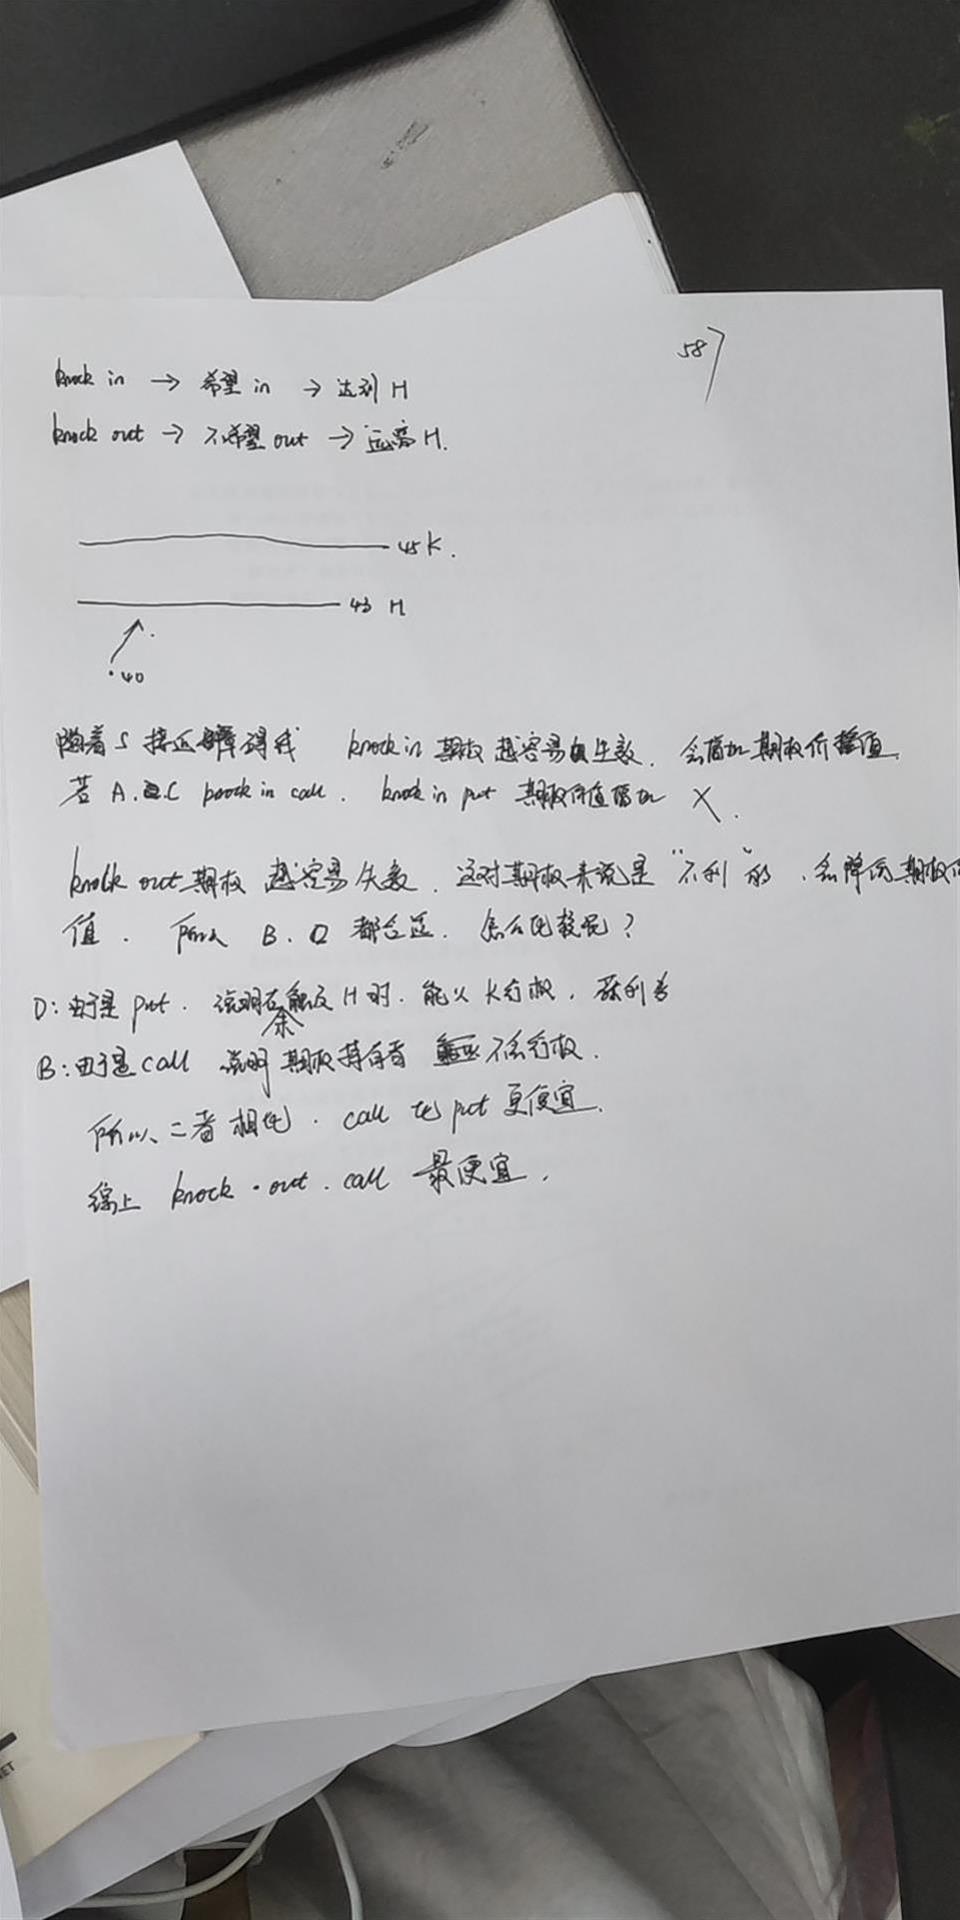 58
knock in → 希望 in → 达到 H
knock out → 不希望 out → 远离 H.
45 K.
43 H
40
随着 S 接近 障碍 knock in 期权 越容易 生效. 会增加 期权价值
若 A. C knock in call. knock in put 期权价值增加 X.
knock out 期权 越容易 失效. 这对期权来说是 "不利" 的. 会降低期权价
值. 所以 B. D 都合适. 怎么比较呢?
D: 由于是 put. 说明在触及 H 时. 能以 K 行权.
B: 由于是 call 说明 期权持有者 不会行权.
所以、二者相比. call 比 put 更便宜.
综上 knock-out. call 最便宜.
ET